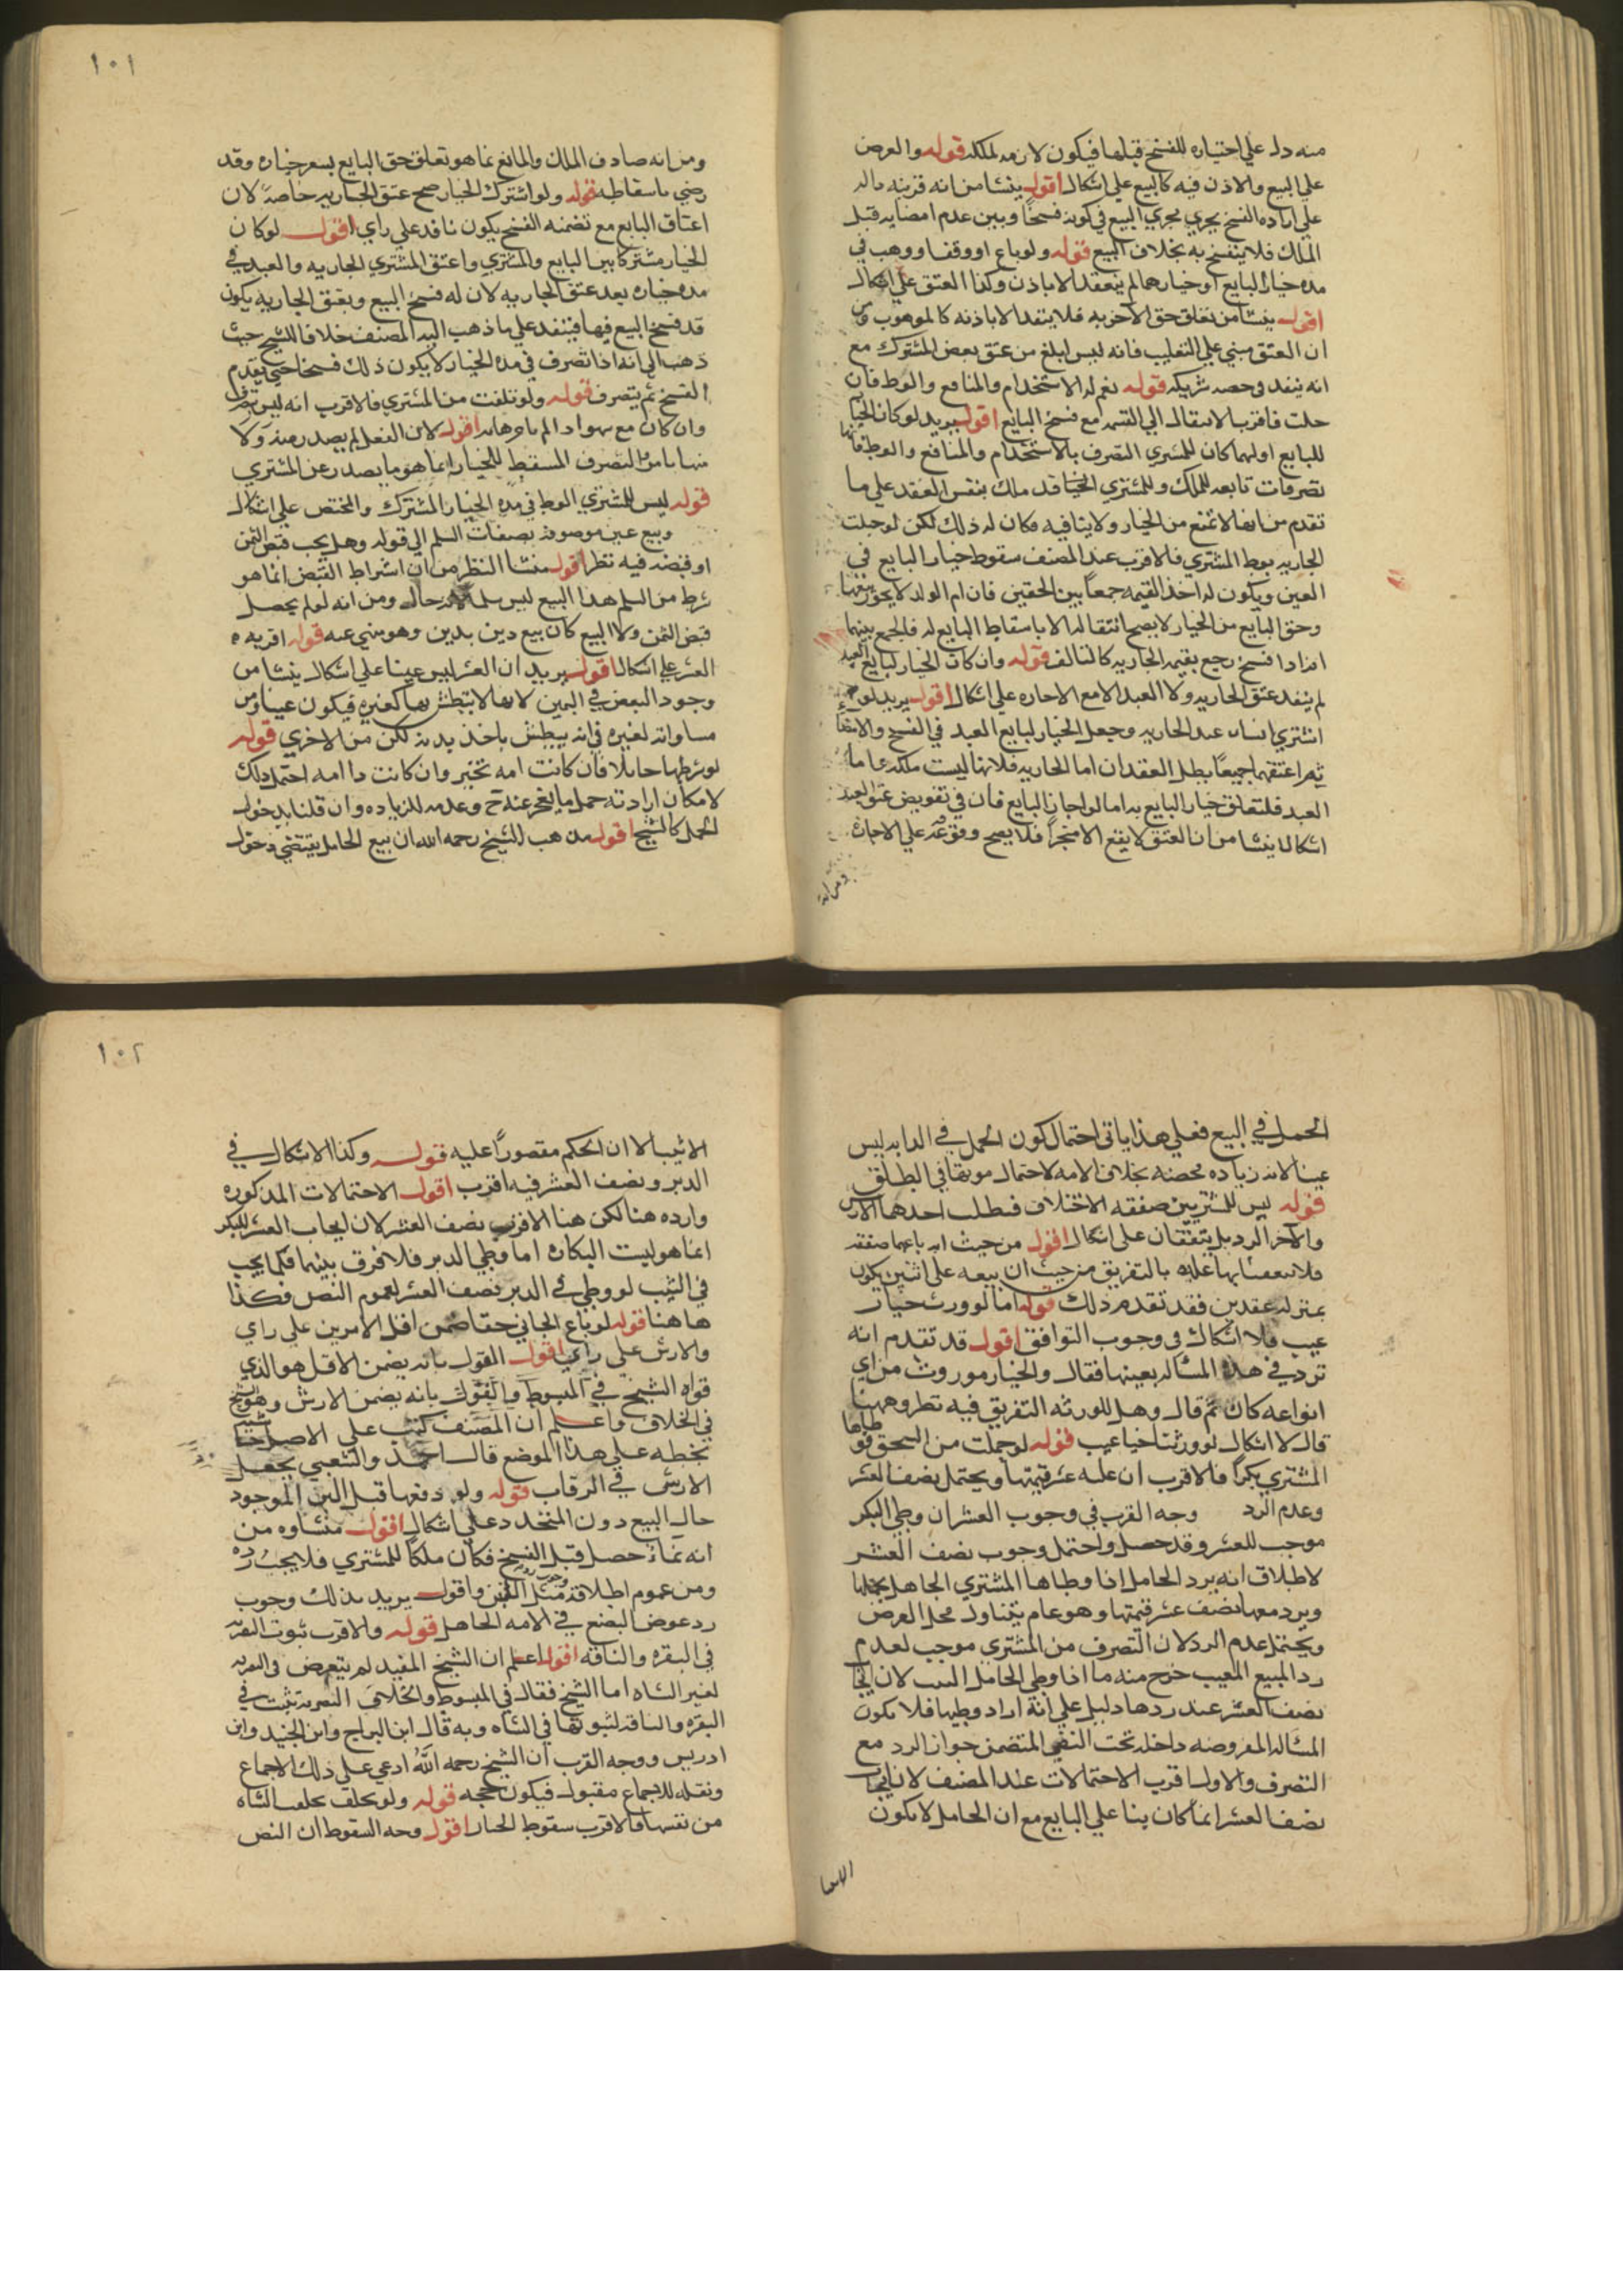 منه دل علي اختياره للفسخ قبلها فيكون لازمه لملكه قوله والعرض
علي البيع والاذن فيه كالبيع علي اشكال اقول ينشا من انه قرينه داله
علي اراده الفسخ يجري مجري البيع في كونه فسخًا وبين عدم امضايه قبل
الملك فلا ينفسخ به بخلاف البيع قوله ولو باع او وقف او وهب في
مده خيار البايع او خيارهما لم ينعقد الا باذن وكذا العتق علي اشكال
اقول ينشا من تعلق حق الاخر به فلا ينفد الا باذنه كالموهوب ومن
ان العتق مبني علي التغليب فانه ليس ابلغ من عتق بعض المشترك مع
انه ينفد في حصه شريكه قوله نعم له الاستخدام والمنافع والوط فان
حلت فاقرب الانتقال الي القيمه مع فسخ البايع اقول يريد لو كان الخيار
للبايع او لهما كان للمشتري التصرف بالاستخدام والمنافع والوط فانها
تصرفات تابعه للملك وللمشتري الخيار قد ملك بنفس العقد علي ما
تقدم من انها لا تمنع من الخيار ولا ينافيه فكان له ذلك لكن لو حبلت
الجاريه بوط المشتري فالاقرب عند المصنف سقوط خيار البايع في
العين ويكون له اخذ القيمه جمعاً بين الحقين فان ام الولد لا يجوز بيعها
وحق البايع من الخيار لا يصح انتقاله الا باسقاط البايع له فالجمع بينهما
انه اذا فسخ رجع بقيمه الجاريه كالتالف قوله وان كان الخيار لبايع العبد
لم ينفد عتق الجاريه ولا العبد الا مع الاجازه علي اشكال اقول يريد لو
اشتري انسان عبدا بجاريه وجعل الخيار لبايع العبد في الفسخ والامضا
ثم اعتقهما جميعًا بطل العقدان اما الجاريه فلانها ليست ملكه واما
العبد فلتعلق خيار البايع به اما لو اجاز البايع فان في تفويض عتق العبد
اشكالا ينشا من ان العتق لا يقع الا منجزاً فلا يصح وقوعه علي الاجازه
ومن انه
١٠١
ومن انه صادف الملك والمانع انما هو تعلق حق البايع بسعر خياره وقد
رضي باسقاطه قوله ولو اشترك الخيار صح عتق الجاريه خاصةً لان
اعتاق البايع مع تضمنه الفسخ يكون نافد علي راي اقول لو كان
الخيار مشتركا بين البايع والمشتري واعتق المشتري الجاريه والعبد في
مده خياره يعد عتق الجاريه لان له فسخ البيع وبعتق الجاريه يكون
قد فسخ البيع فيها فينفد علي ما ذهب اليه المصنف خلافا للشيخ حيث
ذهب الي انه اذا تصرف في مده الخيار لا يكون ذلك فسخا حتي يقدم
الفسخ ثم يتصرف قوله ولو تلفت من المشتري فالاقرب انه ليس تصرف
وان كان مع سهو اقول لان الفعل لم يصدر منه ولا
التصرف المسقط للخيار انما هو ما يصدر عن المشتري
قوله ليس للمشتري الوط في مده الخيار المشترك والمختص علي اشكال
وبيع عين موصوفه بصفات السلم الي قوله وهل يجب قبض الثمن
او قبضه فيه نظر اقول منشا النظر من ان اشتراط القبض انما هو
شرط من السلم هذا البيع ليس سلما لانه حال ومن انه لو لم يحصل
قبض الثمن ولا البيع كان بيع دين بدين وهو منهي عنه قوله اقربه
العشر علي اشكال اقول يريد ان العشر ليس عينا علي اشكال ينشا من
وجود البعض في اليمين لانها لا يبطش بها كغيره فيكون عيبا ومن
مساواته لغيره في انه يبطش باخذ يديه لكن من الاخري قوله
لو شرطها حايلا فان كانت امه تخير وان كانت دابه احتمل ذلك
لامكان ارادته حمل ما يعجز عنه ح وعدمه للزياده وان قلنا بدخول
الحمل كالشيخ اقول مذهب الشيخ رحمه الله ان بيع الحامل يقتضي دخول
الحمل في البيع فعلي هذا ياتي احتمال كون الحمل في الدابه ليس
عيبا لانه زياده محضه بخلاف الامه لاحتمال موتها في الطلق
قوله ليس للمشتريين صفقه الاختلاف فيطلب احدهما الارش
والاخر الرد بل يتفقان علي اشكال اقول من حيث انه باعهما صفقه
فلا يتبعضانها عليه بالتفريق من حيث ان بيعه علي اثنين يكون
بمنزله عقدين فقد تقدم ذلك قوله اما لو ورث خيار
عيب فلا اشكال في وجوب التوافق اقول قد تقدم انه
تردد في هذه المساله بعينها فقال والخيار موروث من اي
انواعه كان ثم قال وهل للورثه التفريق فيه نظر وههنا
قال لا اشكال لو ورثا خيار عيب قوله لو حملت من السحق فوطاها
المشتري بكراً فالاقرب ان عليه عشر قيمتها ويحتمل نصف العشر
وعدم الرد وجه القرب في وجوب العشر ان وطي البكر
موجب للعشر وقد حصل واحتمل وجوب نصف العشر
لاطلاق انه يرد الحامل اذا وطاها المشتري الجاهل بحملها
ويرد معها نصف عشر قيمتها وهو عام يتناول محل العرض
ويحتمل عدم الرد لان التصرف من المشتري موجب لعدم
رد المبيع المعيب خرج منه ما اذا وطي الحامل الثيب لان ايجاب
نصف العشر عند ردها دليل علي انه اراد وطيها فلا يكون
المساله المفروضه داخله تحت النفي المتضمن جواز الرد مع
التصرف والاول اقرب الاحتمالات عند المصنف لان ايجاب
نصف العشر انما كان بنا علي البايع مع ان الحامل لا يكون
الا ثيبا
١٠٢
الا ثيبا لا ان الحكم مقصوراً عليه قوله وكذا الاشكال في
الدبر ونصف العشر فيه اقرب اقول الاحتمالات المذكوره
وارده هنا لكن هنا الاقرب نصف العشر لان ايجاب العشر للبكر
انما هو البكاره اما وطي الدبر فلا فرق بينهما فكما يجب
في الثيب لو وطي في الدبر نصف العشر لعموم النص فكذا
هاهنا قوله لو باع الجاني حقا ضمن اقل الامرين علي راي
والارش علي راي اقول القول بانه يضمن الاقل هو الذي
قواه الشيخ في المبسوط والقول بانه يضمن الارش وهو للشيخ
في الخلاف واعلم ان المصنف كتب علي الاصل حاشيه
بخطه علي هذا الموضع قال احمد والشعبي يجعل
الارش في الرقاب قوله ولو دفعها قبل اللبن الموجود
حال البيع دون المتجدد علي اشكال اقول منشاوه من
انه نماء حصل قبل الفسخ فكان ملكاً للمشتري فلا يجب رده
ومن عموم اطلاقه مثل اللبن واقول يريد بذلك وجوب
رد عوض البضع في الامه الحامل قوله والاقرب ثبوت التصريه
في البقره والناقه اقول اعلم ان الشيخ المفيد لم يتعرض في التصريه
لغير الشاه اما الشيخ فقال في المبسوط والخلاف التصريه تثبت في
البقره والناقه لثبوتها في الشاه وبه قال ابن البراج وابن الجنيد وابن
ادريس ووجه القرب ان الشيخ رحمه اللّه ادعي علي ذلك الاجماع
ونقله للاجماع مقبول فيكون حجه قوله ولو تحلف الشاه
من نفسها فالاقرب سقوط الخيار اقول وجه السقوط ان النص